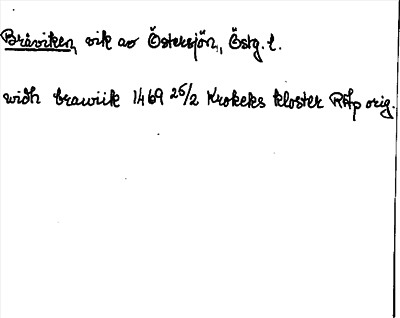 Bråviken, vik av Östersjön, Östg. l.
widh brawiik 1469 26/2 Krokeks kloster RAp orig.